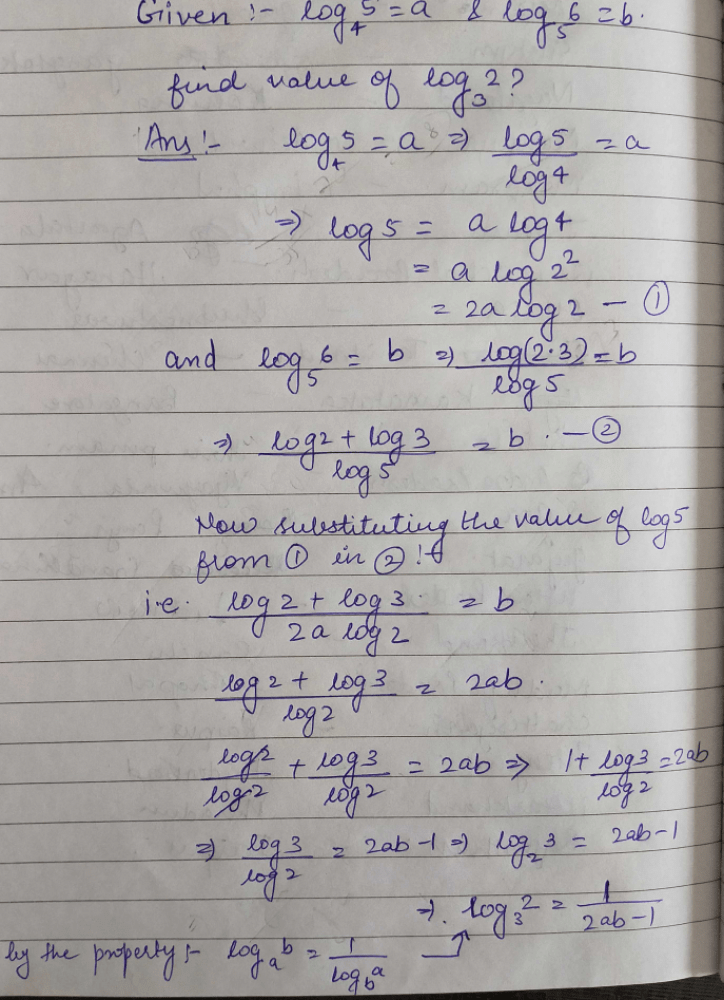 Given :- log₄5 = a & log₅6 = b.
find value of log₃2?
Ans :- log₄5 = a ⇒ log5/log4 = a
⇒ log5 = a log4
= a log2²
= 2a log2 — ①
and log₅6 = b ⇒ log(2·3)/log5 = b
⇒ (log2 + log3)/log5 = b. — ②
Now substituting the value of log5
from ① in ② :-
i.e. (log2 + log3)/(2a log2) = b
(log2 + log3)/log2 = 2ab.
log2/log2 + log3/log2 = 2ab ⇒ 1 + log3/log2 = 2ab
⇒ log3/log2 = 2ab-1 ⇒ log₂3 = 2ab-1
⇒. log₃2 = 1/(2ab-1)
by the property :- logₐb = 1/log_b a